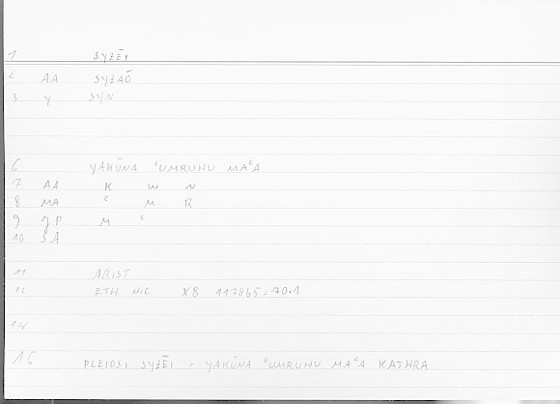 1 SYZĒI
2 AA SYZAŌ
3 Y SYN
6 YAKŪNA ʿUMRUHU MAʿA
7 AA K W N
8 MA ʿ M R
9 JP M ʿ
10 SA
11 ARIST
12 ETH NIC X8 117865=70.1
14
16 PLEIOSI SYZĒI = YAKŪNA ʿUMRUHU MAʿA KATHRA